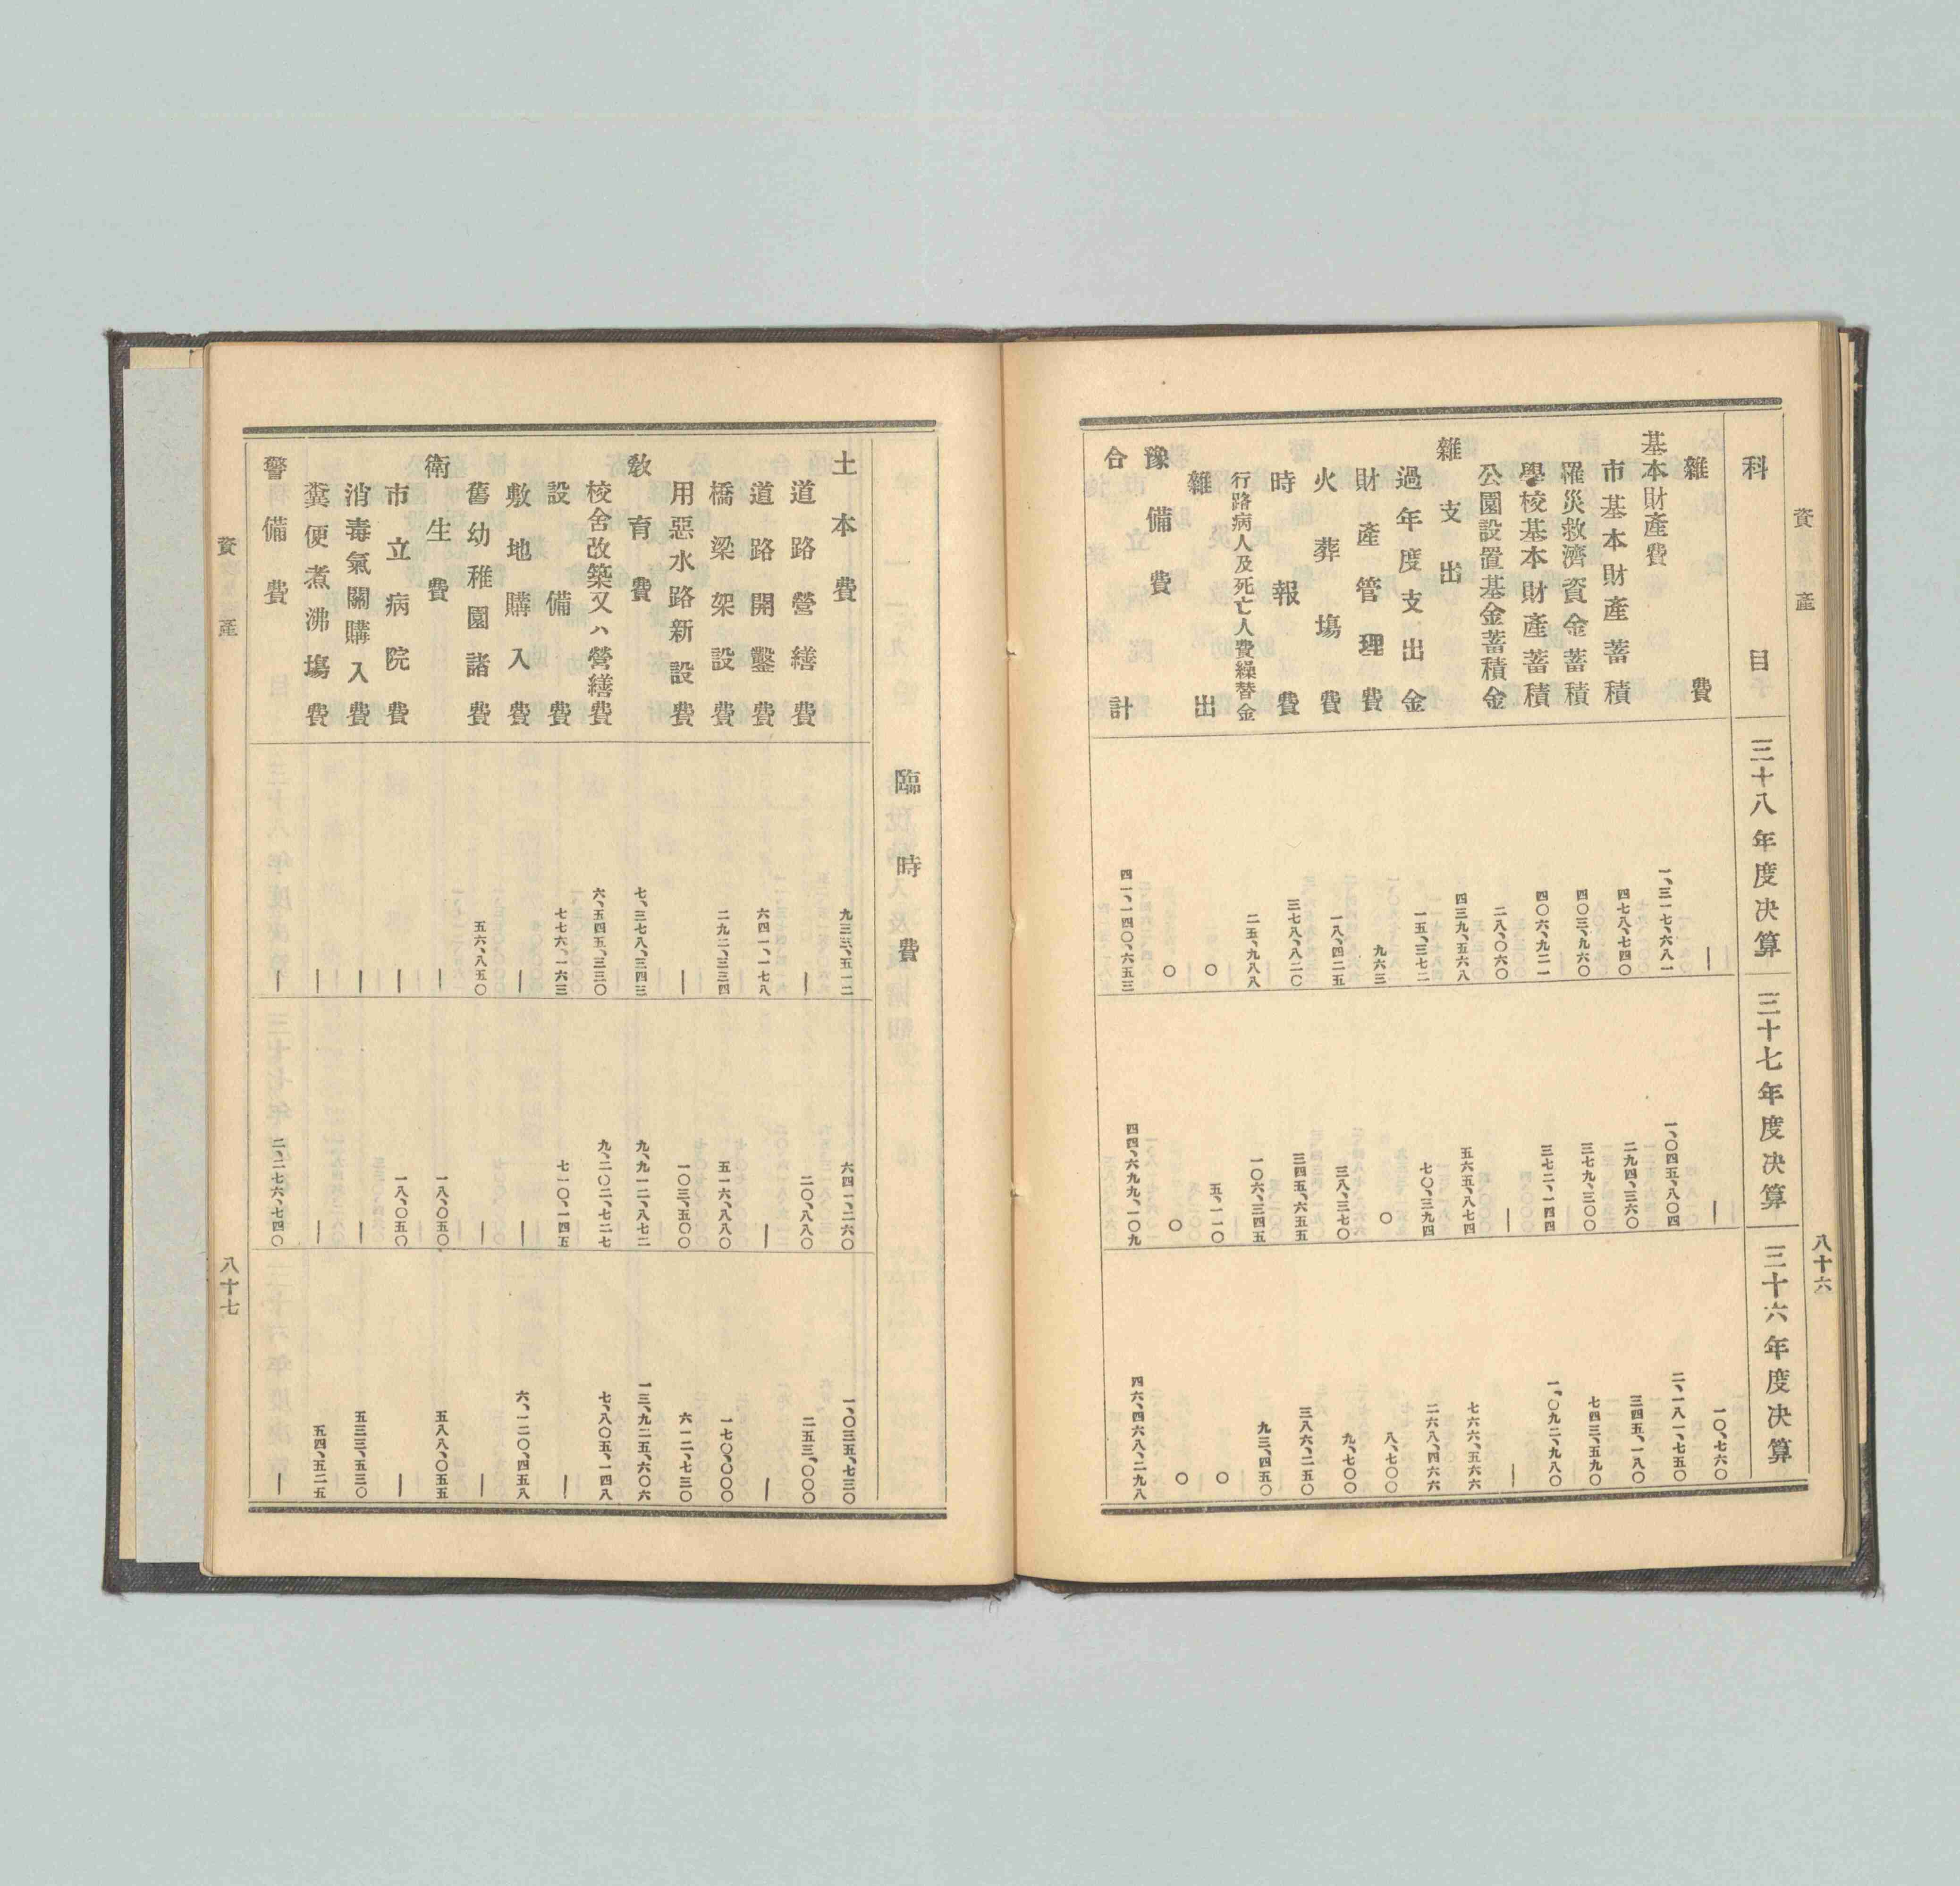 資產
八十六
科目 三十八年度決算 三十七年度決算 三十六年度決算
雜費 ― ― 一〇、七六〇
基本財產費 一、三一七、六八一 一、〇四五、八〇四 二、一八一、七五〇
市基本財產蓄積 四七八、七四〇 二九四、三六〇 三四五、一八〇
罹災救濟資金蓄積 四〇三、九六〇 三七九、三〇〇 七四三、五九〇
學校基本財產蓄積 四〇六、九二一 三七二、一四四 一、〇九二、九八〇
公園設置基金蓄積金 二八、〇六〇 ― ―
雜支出 四三九、五六八 五六五、八七四 七六六、五六六
過年度支出金 一五、三七二 七〇、三九四 二六八、四六六
財產管理費 九六三 〇 八、七〇〇
火葬塲費 一八、四二五 三八、三七〇 九、七〇〇
時報費 三七八、八二〇 三四五、六五五 三八六、二五〇
行路病人及死亡人費繰替金 二五、九八八 一〇六、三四五 九三、四五〇
雜出 〇 五、一一〇 〇
豫備費 〇 〇 〇
合計 四一、一四〇、六五三 四四、六九九、一〇九 四六、四六八、二九八
臨時費
土本費 九三三、五一二 六四一、二六〇 一、〇三五、七三〇
道路營繕費 ― 二〇、八八〇 二五三、〇〇〇
道路開鑿費 六四一、一七八 ― ―
橋梁架設費 二九二、三三四 五一六、八八〇 一七〇、〇〇〇
用惡水路新設費 ― 一〇三、五〇〇 六一二、七三〇
敎育費 七、三七八、三四三 九、九一二、八七二 一三、九二五、六〇六
校舍改築又ハ營繕費 六、五四五、三三〇 九、二〇二、七二七 七、八〇五、一四八
設備費 七七六、一六三 七一〇、一四五 ―
敷地購入費 ― ― 六、一二〇、四五八
舊幼稚園諸費 五六、八五〇 ― ―
衛生費 ― 一八、〇五〇 五八八、〇五五
市立病院費 ― 一八、〇五〇 ―
消毒氣關購入費 ― ― 五三三、五三〇
糞便煮沸塲費 ― ― 五四、五二五
警備費 ― 二、二七六、七四〇 ―
資產
八十七